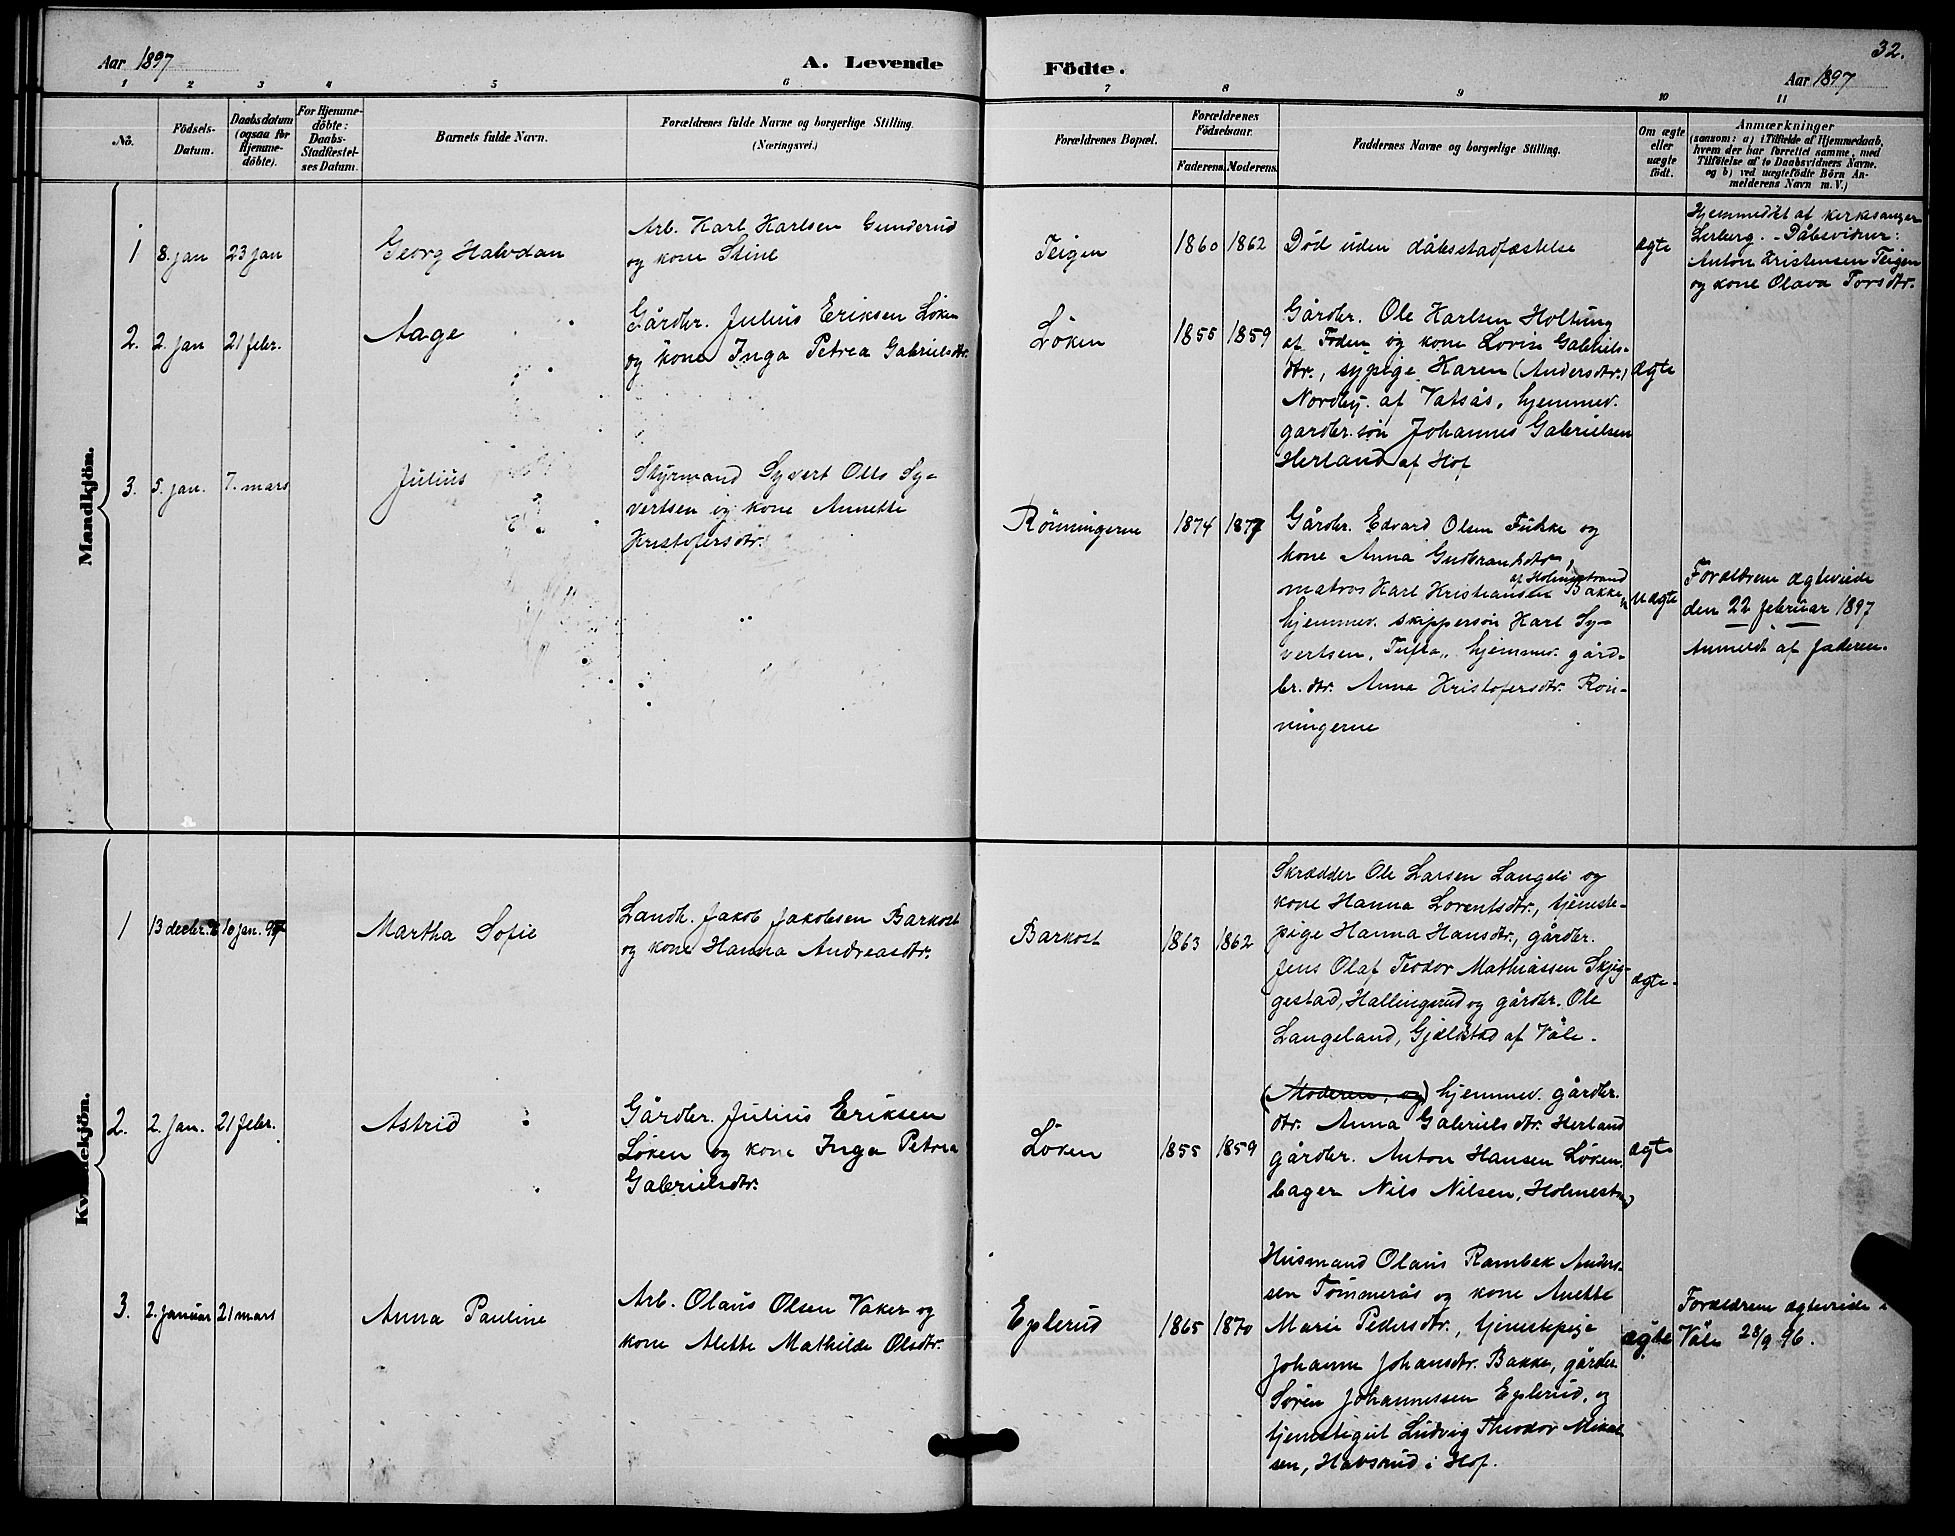 Aar 1897
A. Levende
Födte.
32.
Aar 1897
1 2 3 4 5 6 7 8 9 10 11
No.
Födsels-
Datum.
Daabsdatum
(ogsaa for
Hjemme-
döbte).
For Hjemme-
döbte:
Daabs-
Stadfæstel-
ses Datum.
Barnets fulde Navn.
Forældrenes fulde Navne og borgerlige Stilling.
(Næringsvei.)
Forældrenes Bopæl.
Forældrenes
Födselsaar.
Faderens. Moderens.
Faddernes Navne og borgerlige Stilling.
Om ægte
eller
uægte
født.
Anmærkninger
(saasom: a) i Tilfælde af Hjemmedaab,
hvem der har forrettet samme, med
Tilföielse af to Daabsvidners Navne.
og b) ved uægtefödte Börn An-
melderens Navn m. V.)
Mandkjön.
1 8. jan 23 jan
Georg Halvdan
Arb. Karl Karlsen Gunderud
og kone Stine
Teigen
1860 1862
Død uden dåbsstadfæstelse
ægte
Hjemmedøbt af kirkesanger
Lerberg. - Dåbsvidner:
Anton Kristensen Teigen
og kone Olava Torsdtr.
2. 2. jan 21 febr.
Aage
Gårdbr. Julius Eriksen Løken
og kone Inga Petrea Gabrielsdtr.
Løken
1855 1859
Gårdbr. Ole Karlsen Holtung
af Foden og kone Lovise Gabriels-
dtr., sypige Karen (Andersdtr.)
Nordby af Vatsås, hjemmev.
gardbr. søn Johannes Gabrielsen
Herland af Hof
ægte
3. 5. jan. 7. mars
Julius
Styrmand Syvert Olls Sy-
vertsen og kone Annette
Kristofersdtr.
Rönningerne
1874 1877
Gårdbr. Edvard Olsen Fukke og
kone Anna Gudbrandsdtr,
af Holmestrand
matros Karl Kristiansen Bakke,
hjemmev. skippersøn Karl Sy-
vertsen, Tufta, hjemmev. gård-
br. dtr. Anna Kristofersdtr. Rön-
ningerne
uægte
Forældrene ægteviede
den 22 februar 1897
Anmeldt af faderen.
Kvindekjön.
1 13 decbr. 96 10 jan. 97
Martha Sofie
Landh. Jakob Jakobsen Barkost
og kone Hanna Andreasdtr.
Barkost
1863 1862
Skrædder Ole Larsen Langeli og
kone Hanna Lorentsdtr., tjeneste-
pige Hanna Hansdtr., gårdbr.
Jens Olaf Teodor Mathiassen Skjeg-
gestad, Hallingsrud og gårdbr. Ole
Langeland, Gjelstad af Våle.
ægte.
2. 2. jan. 21 febr.
Astrid
Gårdbr. Julius Eriksen
Løken og kone Inga Petrea
Gabrielsdtr.
Løken
1855 1859
(Moderen, og) hjemmev. gårdbr.
dtr. Anna Gabrielsdtr. Herland
gårdbr. Anton Hansen Løken,
bager Nils Nilsen, Holmestr.
ægte
3. 2. januar 21 mars
Anna Pauline
Arb. Olaus Olsen Vaker og
kone Alette Mathilde Olsdtr.
Eplerud
1865 1870
Husmand Olaus Rambek Anders-
sen Tømmerås og kone Anette
Marie Pedersdtr., tjenestpige
Johanne Johansdtr. Bakke, gårdbr.
Søren Johannessen Eplerud, og
tjenestegut Ludvig Theodor Mikal-
sen, Havsrud i Hof.
ægte
Forældrene ægteviede i
Våle 28/9 96.